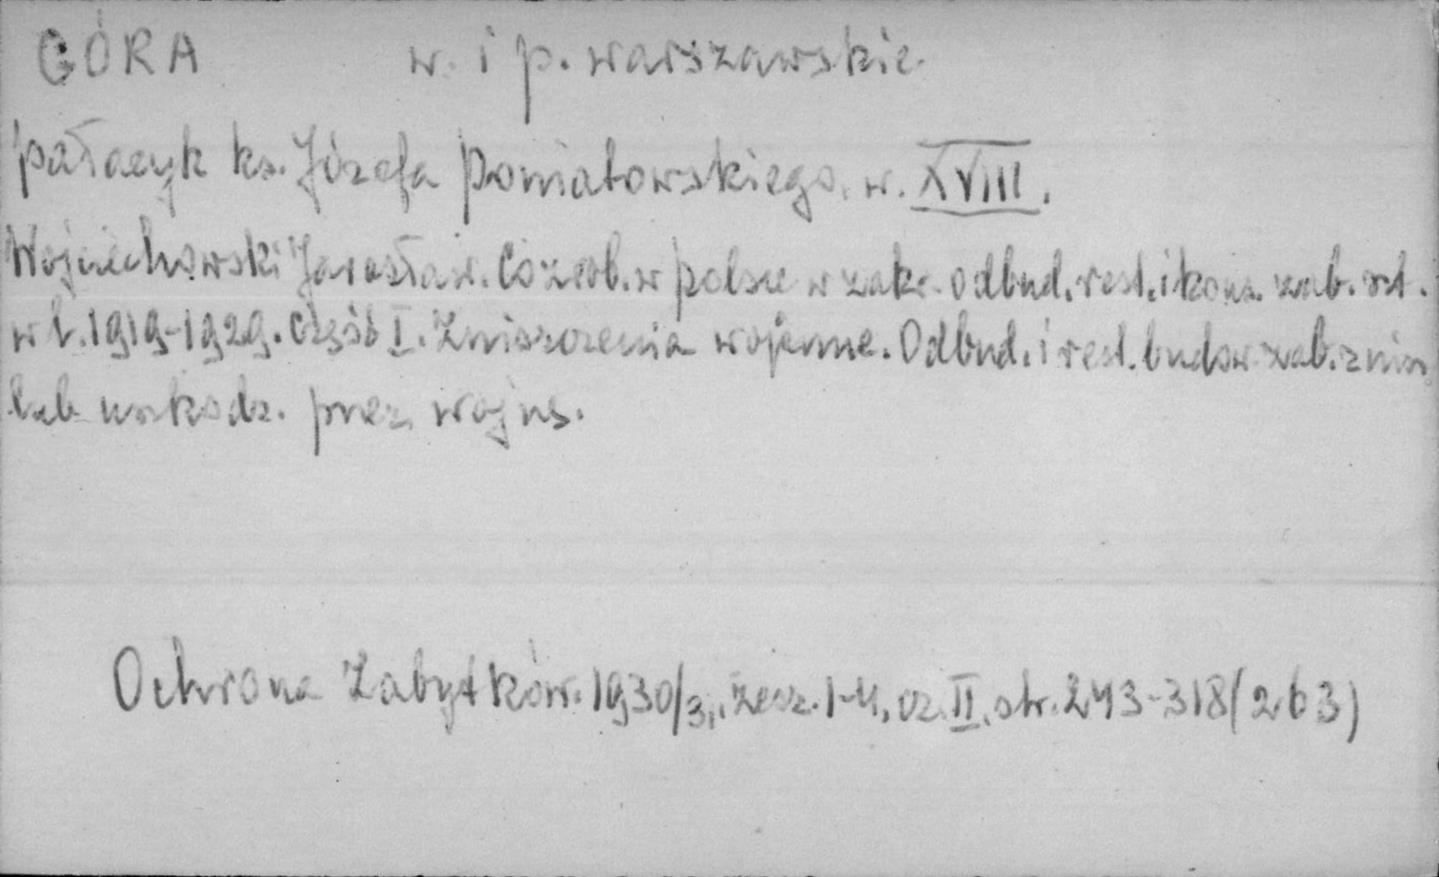 GÓRA w. i p. warszawskie.
pałacyk ks. Józefa Poniatowskiego, w. XVIII.
Wojciechowski Jarosław. Co zrob. w Polsce w zakr. odbud. rest. i kons. zab. szt.
w l. 1919-1929. Część I. Zniszczenia wojenne. Odbud. i rest. budow. zab. znisz
lub uszkodz. przez wojnę.
Ochrona Zabytków. 1930/31, zesz. 1-4, cz. II, str. 243-318 (263)